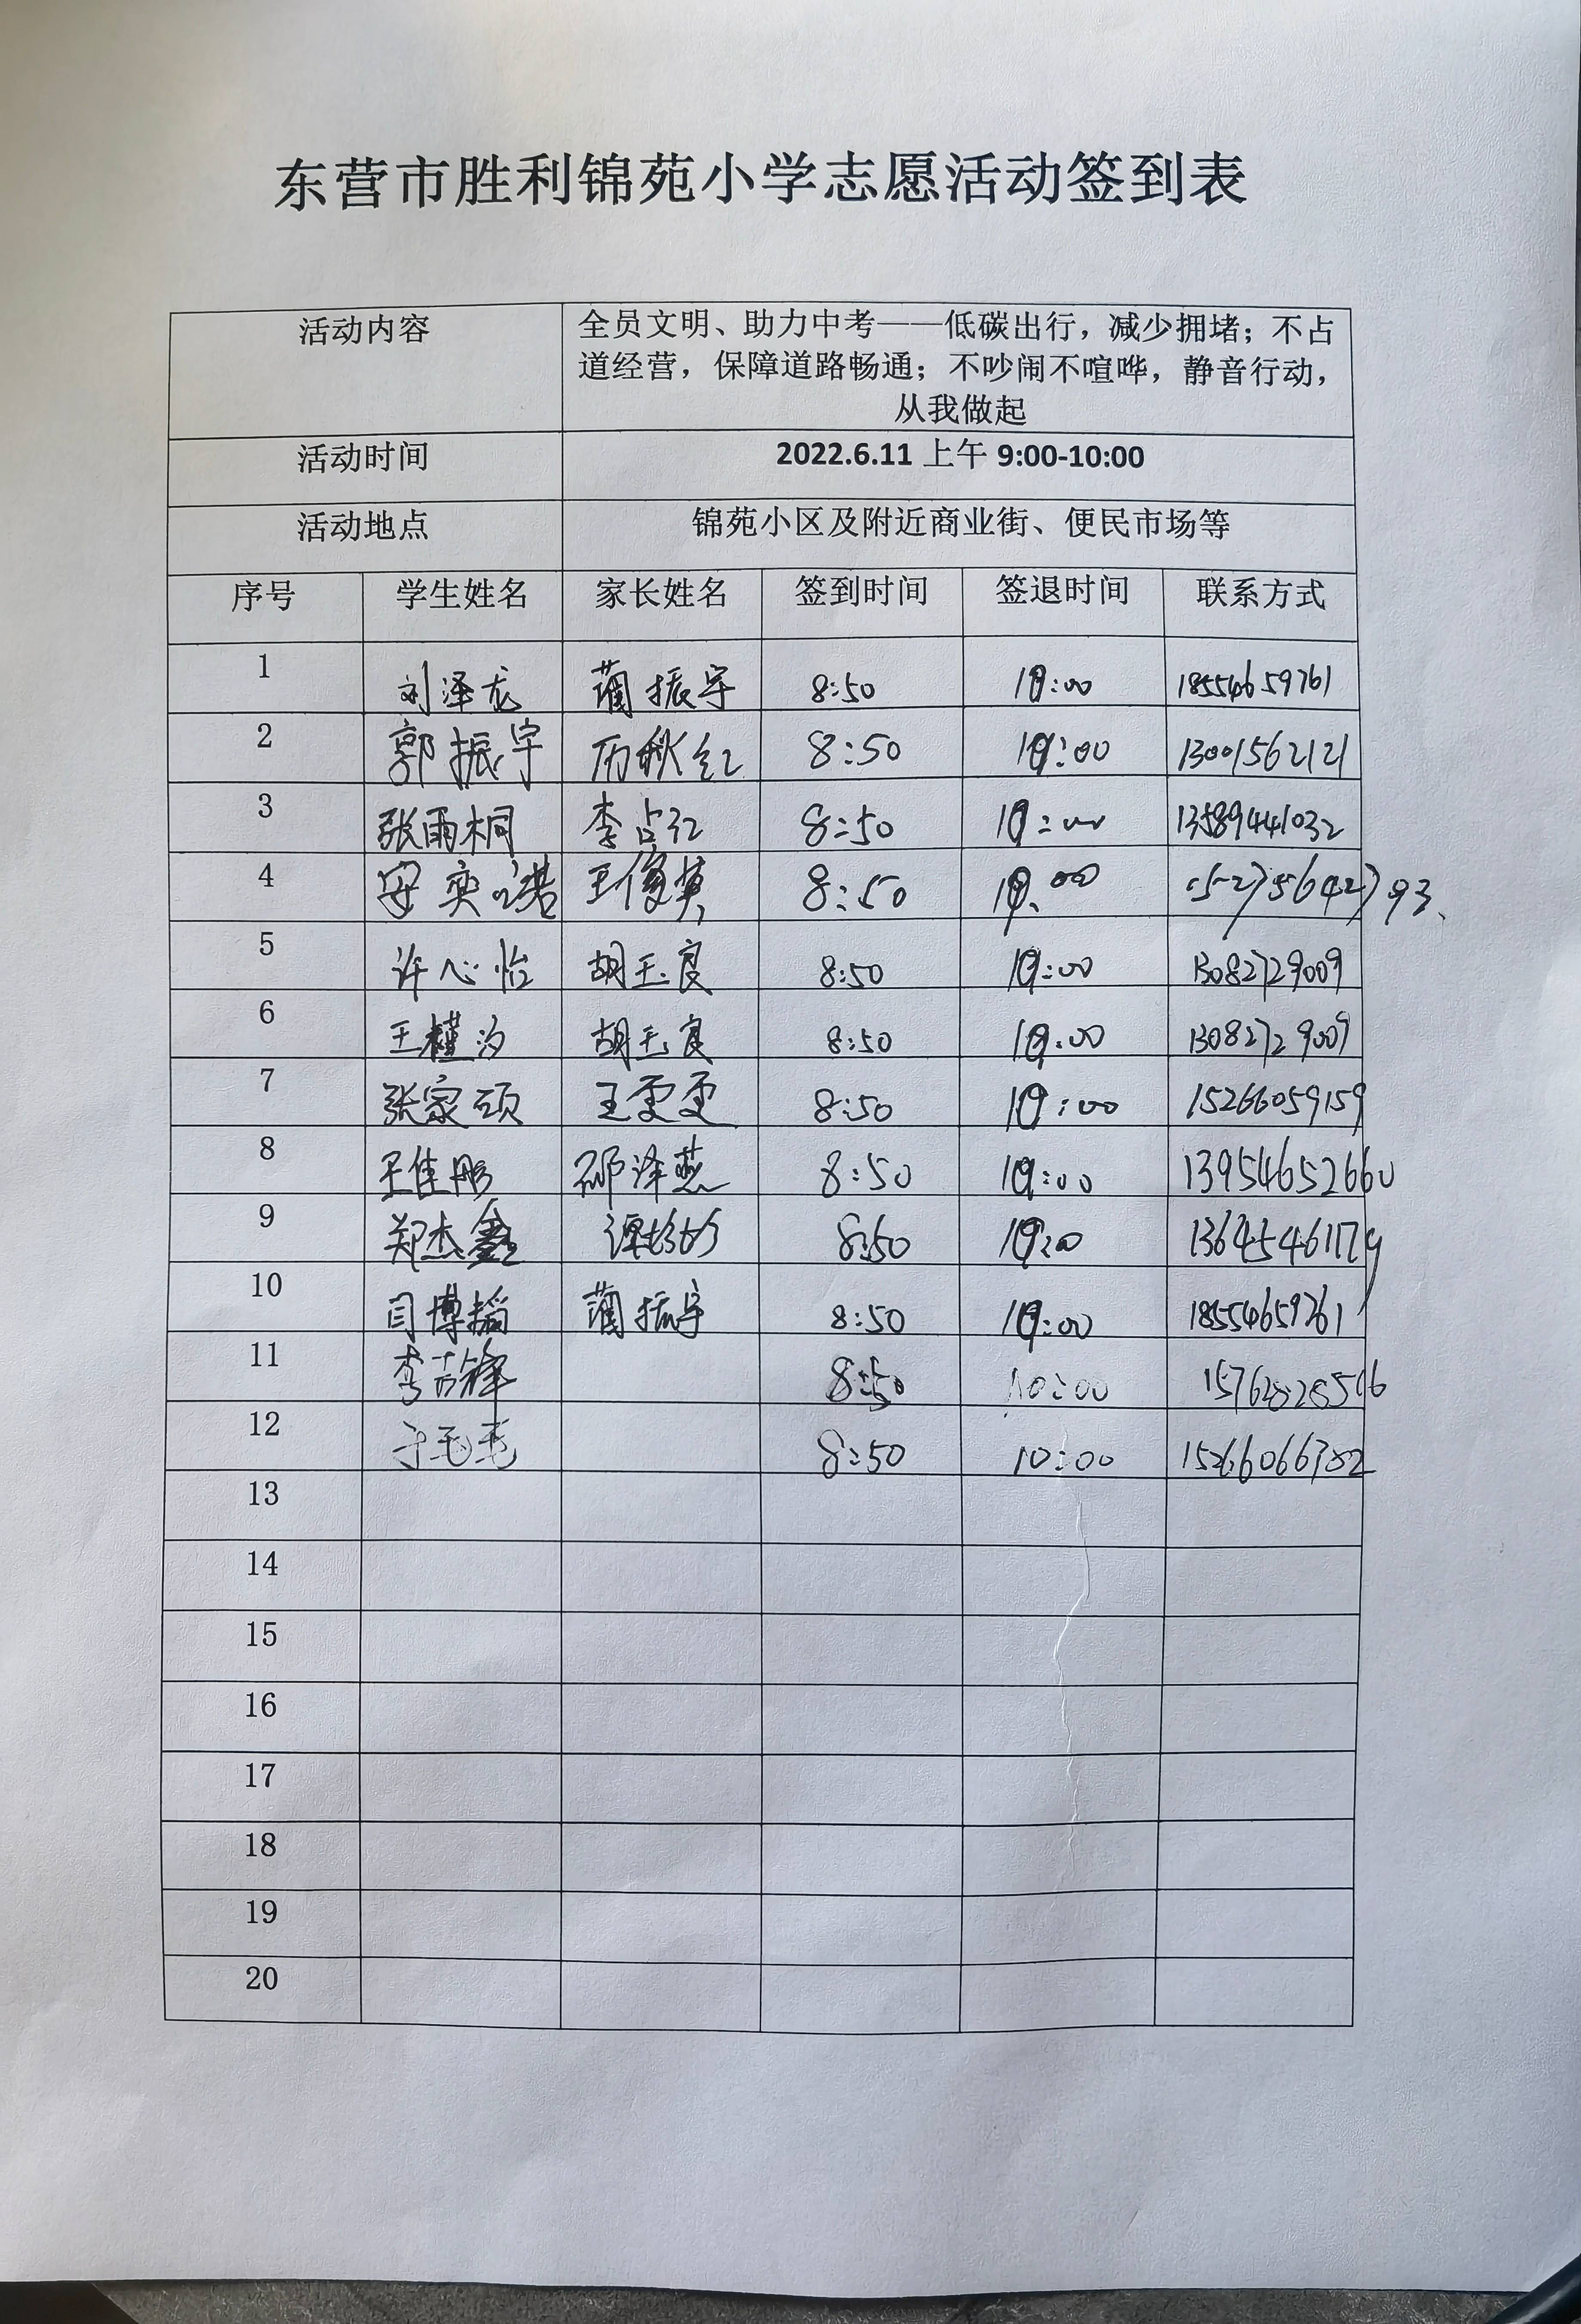 东营市胜利锦苑小学志愿活动签到表
活动内容 全员文明、助力中考——低碳出行，减少拥堵；不占
道经营，保障道路畅通；不吵闹不喧哗，静音行动，
从我做起
活动时间 2022.6.11 上午 9:00-10:00
活动地点 锦苑小区及附近商业街、便民市场等
序号 学生姓名 家长姓名 签到时间 签退时间 联系方式
1 刘泽龙 蔺振宇 8:50 10:00 18554659761
2 郭振宇 历秋红 8:50 10:00 13001562121
3 张雨桐 李占红 8:50 10:00 13589441032
4 王俊英 8:50 10:00
5 许心怡 胡玉良 8:50 10:00 13082729009
6 王槿汐 胡玉良 8:50 10:00 13082729009
7 张家硕 王雯雯 8:50 10:00 15266059159
8 王佳彤 邵泽燕 8:50 10:00 13954652660
9 郑杰鑫 谭彬彬 8:50 10:00 13645461179
10 闫博韬 蔺振宇 8:50 10:00 18554659761
11 8:50 10:00
12 于毛毛 8:50 10:00
13
14
15
16
17
18
19
20